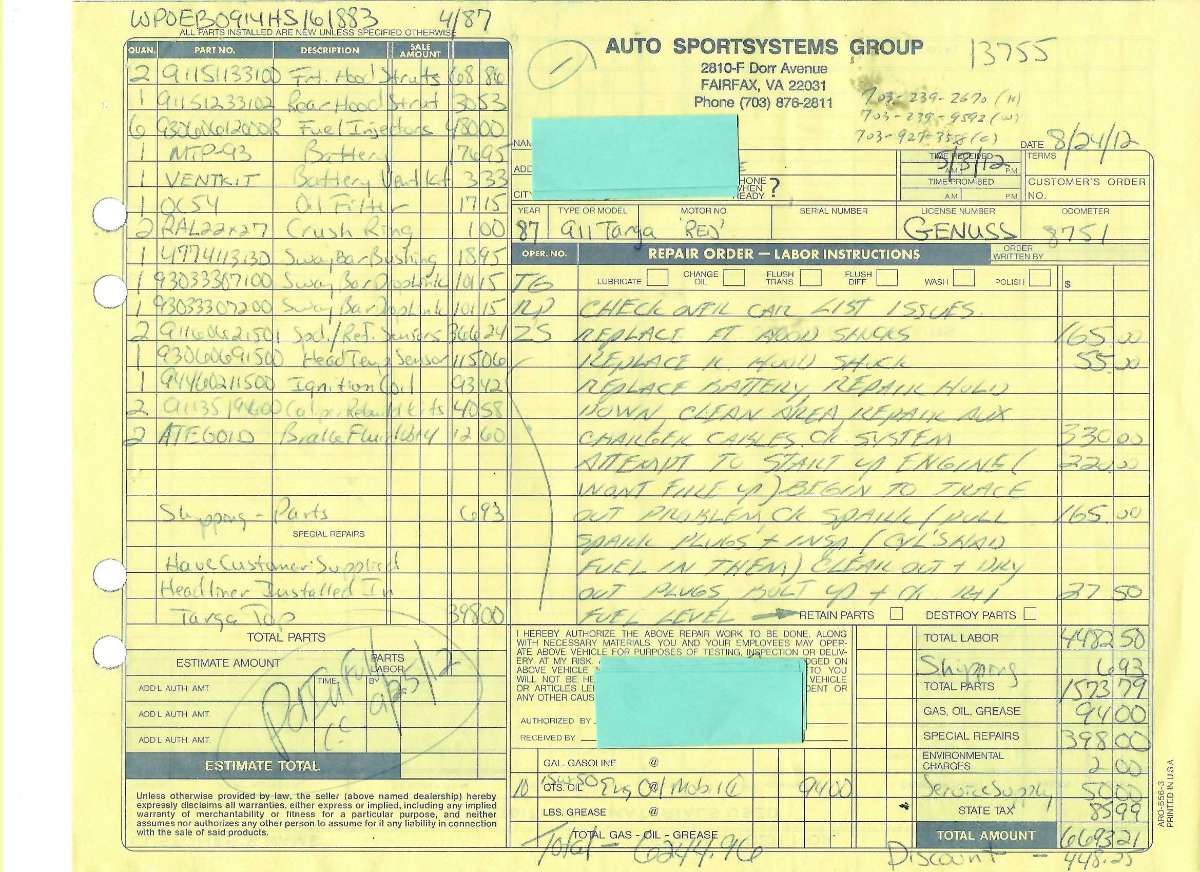 WP0EB0914HS161883 4/87
ALL PARTS INSTALLED ARE NEW UNLESS SPECIFIED OTHERWISE
QUAN. PART NO. DESCRIPTION SALE AMOUNT
2 91151133100 Frt. Hood Struts 68 86
1 91151233102 Rear Hood Strut 30 53
6 93060612000R Fuel Injectors 480 00
1 MTP-93 Battery 76 95
1 VENTKIT Battery Vent Kit 3 33
1 OC54 Oil Filter 17 15
2 RAL22x27 Crush Ring 1 00
1 477411313D Sway Bar Bushing 18 95
1 93033307100 Sway Bar Drop Link 101 15
1 93033307200 Sway Bar Drop Link 101 15
2 91160621501 Spd./Ref. Sensors 366 24
1 93060691500 Head Temp Sensor 115 06
1 94460211500 Ignition Coil 93 42
2 Rebuild Kits 40 58
2 ATE601D Brake Fluid 12 60
Shipping - Parts 6 93
SPECIAL REPAIRS
Have Customer Supplied
Headliner Installed In
Targa Top 398 00
TOTAL PARTS
ESTIMATE AMOUNT PARTS LABOR
ADD'L AUTH. AMT. TIME BY
ADD'L AUTH. AMT.
ADD'L AUTH. AMT.
Pd In Full
CC 9/25/12
ESTIMATE TOTAL
Unless otherwise provided by law, the seller (above named dealership) hereby
expressly disclaims all warranties, either express or implied, including any implied
warranty of merchantability or fitness for a particular purpose, and neither
assumes nor authorizes any other person to assume for it any liability in connection
with the sale of said products.
1
AUTO SPORTSYSTEMS GROUP
13755
2810-F Dorr Avenue
FAIRFAX, VA 22031
Phone (703) 876-2811
703-239-2670 (H)
703-239-9592 (W)
703-927-3558 (C)
NAM
ADD
CITY
PHONE WHEN READY ?
TIME RECEIVED A.M. P.M.
TIME PROMISED A.M. P.M.
DATE 8/24/12
TERMS
CUSTOMER'S ORDER NO.
YEAR TYPE OR MODEL MOTOR NO. SERIAL NUMBER LICENSE NUMBER ODOMETER
87 911 Targa 'RED' GENUSS 8751
OPER. NO. REPAIR ORDER — LABOR INSTRUCTIONS ORDER WRITTEN BY
TG LUBRICATE CHANGE OIL FLUSH TRANS. FLUSH DIFF. WASH POLISH $
CHECK OVER CAR LIST ISSUES.
ZS REPLACE FT HOOD SHOCKS 165.00
REPLACE R. HOOD SHOCK 55.00
REPLACE BATTERY, REPAIR HOLD
DOWN, CLEAN AREA, REPAIR AUX
CHARGER CABLES, CK SYSTEM 330 00
ATTEMPT TO START UP ENGINE ( 220.00
WONT FIRE UP) BEGIN TO TRACE
OUT PROBLEM, CK SPARK / PULL 165.00
SPARK PLUGS + INSP (CYL'S HAD
FUEL IN THEM) CLEAR OUT + DRY
OUT PLUGS, BOLT UP + CK 27 50
FUEL LEVEL → RETAIN PARTS DESTROY PARTS
I HEREBY AUTHORIZE THE ABOVE REPAIR WORK TO BE DONE, ALONG
WITH NECESSARY MATERIALS. YOU AND YOUR EMPLOYEES MAY OPER-
ATE ABOVE VEHICLE FOR PURPOSES OF TESTING, INSPECTION OR DELIV-
ERY AT MY RISK. DGED ON
ABOVE VEHICLE TO YOU
WILL NOT BE HE VEHICLE
OR ARTICLES LE DENT OR
ANY OTHER CAUS
AUTHORIZED BY
RECEIVED BY
GAL. GASOLINE @
10 QTS. OIL 15W50 Eng Oil Mobil @ 94 00
LBS. GREASE @
TOTAL GAS - OIL - GREASE
Total - 6244.96
TOTAL LABOR 4482 50
Shipping 6 93
TOTAL PARTS 1573 79
GAS, OIL, GREASE 94 00
SPECIAL REPAIRS 398 00
ENVIRONMENTAL CHARGES 2 00
Service Supply 50 00
STATE TAX 85 99
TOTAL AMOUNT 6693 21
Discount - 448.25
ARO-656-3
PRINTED IN U.S.A